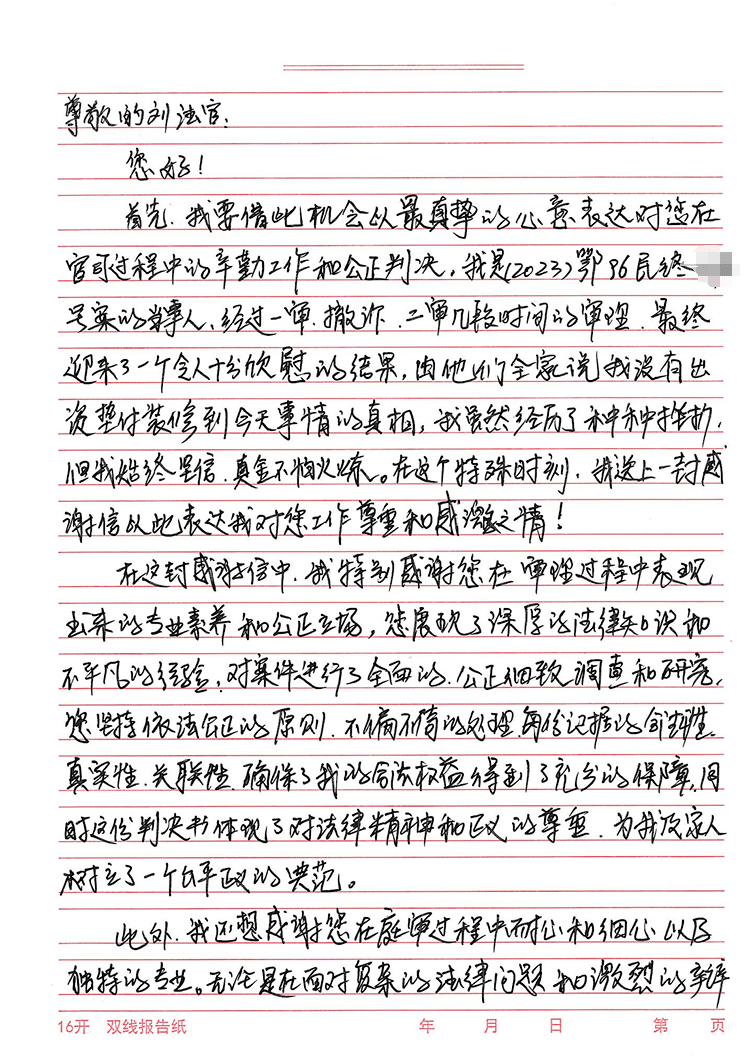 尊敬的刘法官:
您好!
首先、我要借此机会以最真挚的心意表达对您在
官司过程中的辛勤工作和公正判决,我是(2023)鄂96民终
号案的当事人、经过一审、撤诉、二审几段时间的审理、最终
迎来了一个令人十分欣慰的结果,由他们全家说我没有出
资垫付装修到今天事情的真相,我虽然经历了种种挫折、
但我始终坚信、真金不怕火炼。在这个特殊时刻、我送上一封感
谢信以此表达我对您工作尊重和感激之情!
在这封感谢信中、我特别感谢您在审理过程中表现
出来的专业素养和公正立场,您展现了深厚的法律知识和
不平凡的经验,对案件进行了全面的、公正细致调查和研究,
您坚持依法公正的原则、不偏不倚的处理每份证据的合法性、
真实性、关联性、确保了我的合法权益得到了充分的保障,同
时这份判决书体现了对法律精神和正义的尊重、为我及家人
树立了一个公平正义的典范。
此外、我还想感谢您在庭审过程中耐心和细心以及
独特的专业。无论是在面对复杂的法律问题和激烈的辩
16开 双线报告纸 年 月 日 第 页